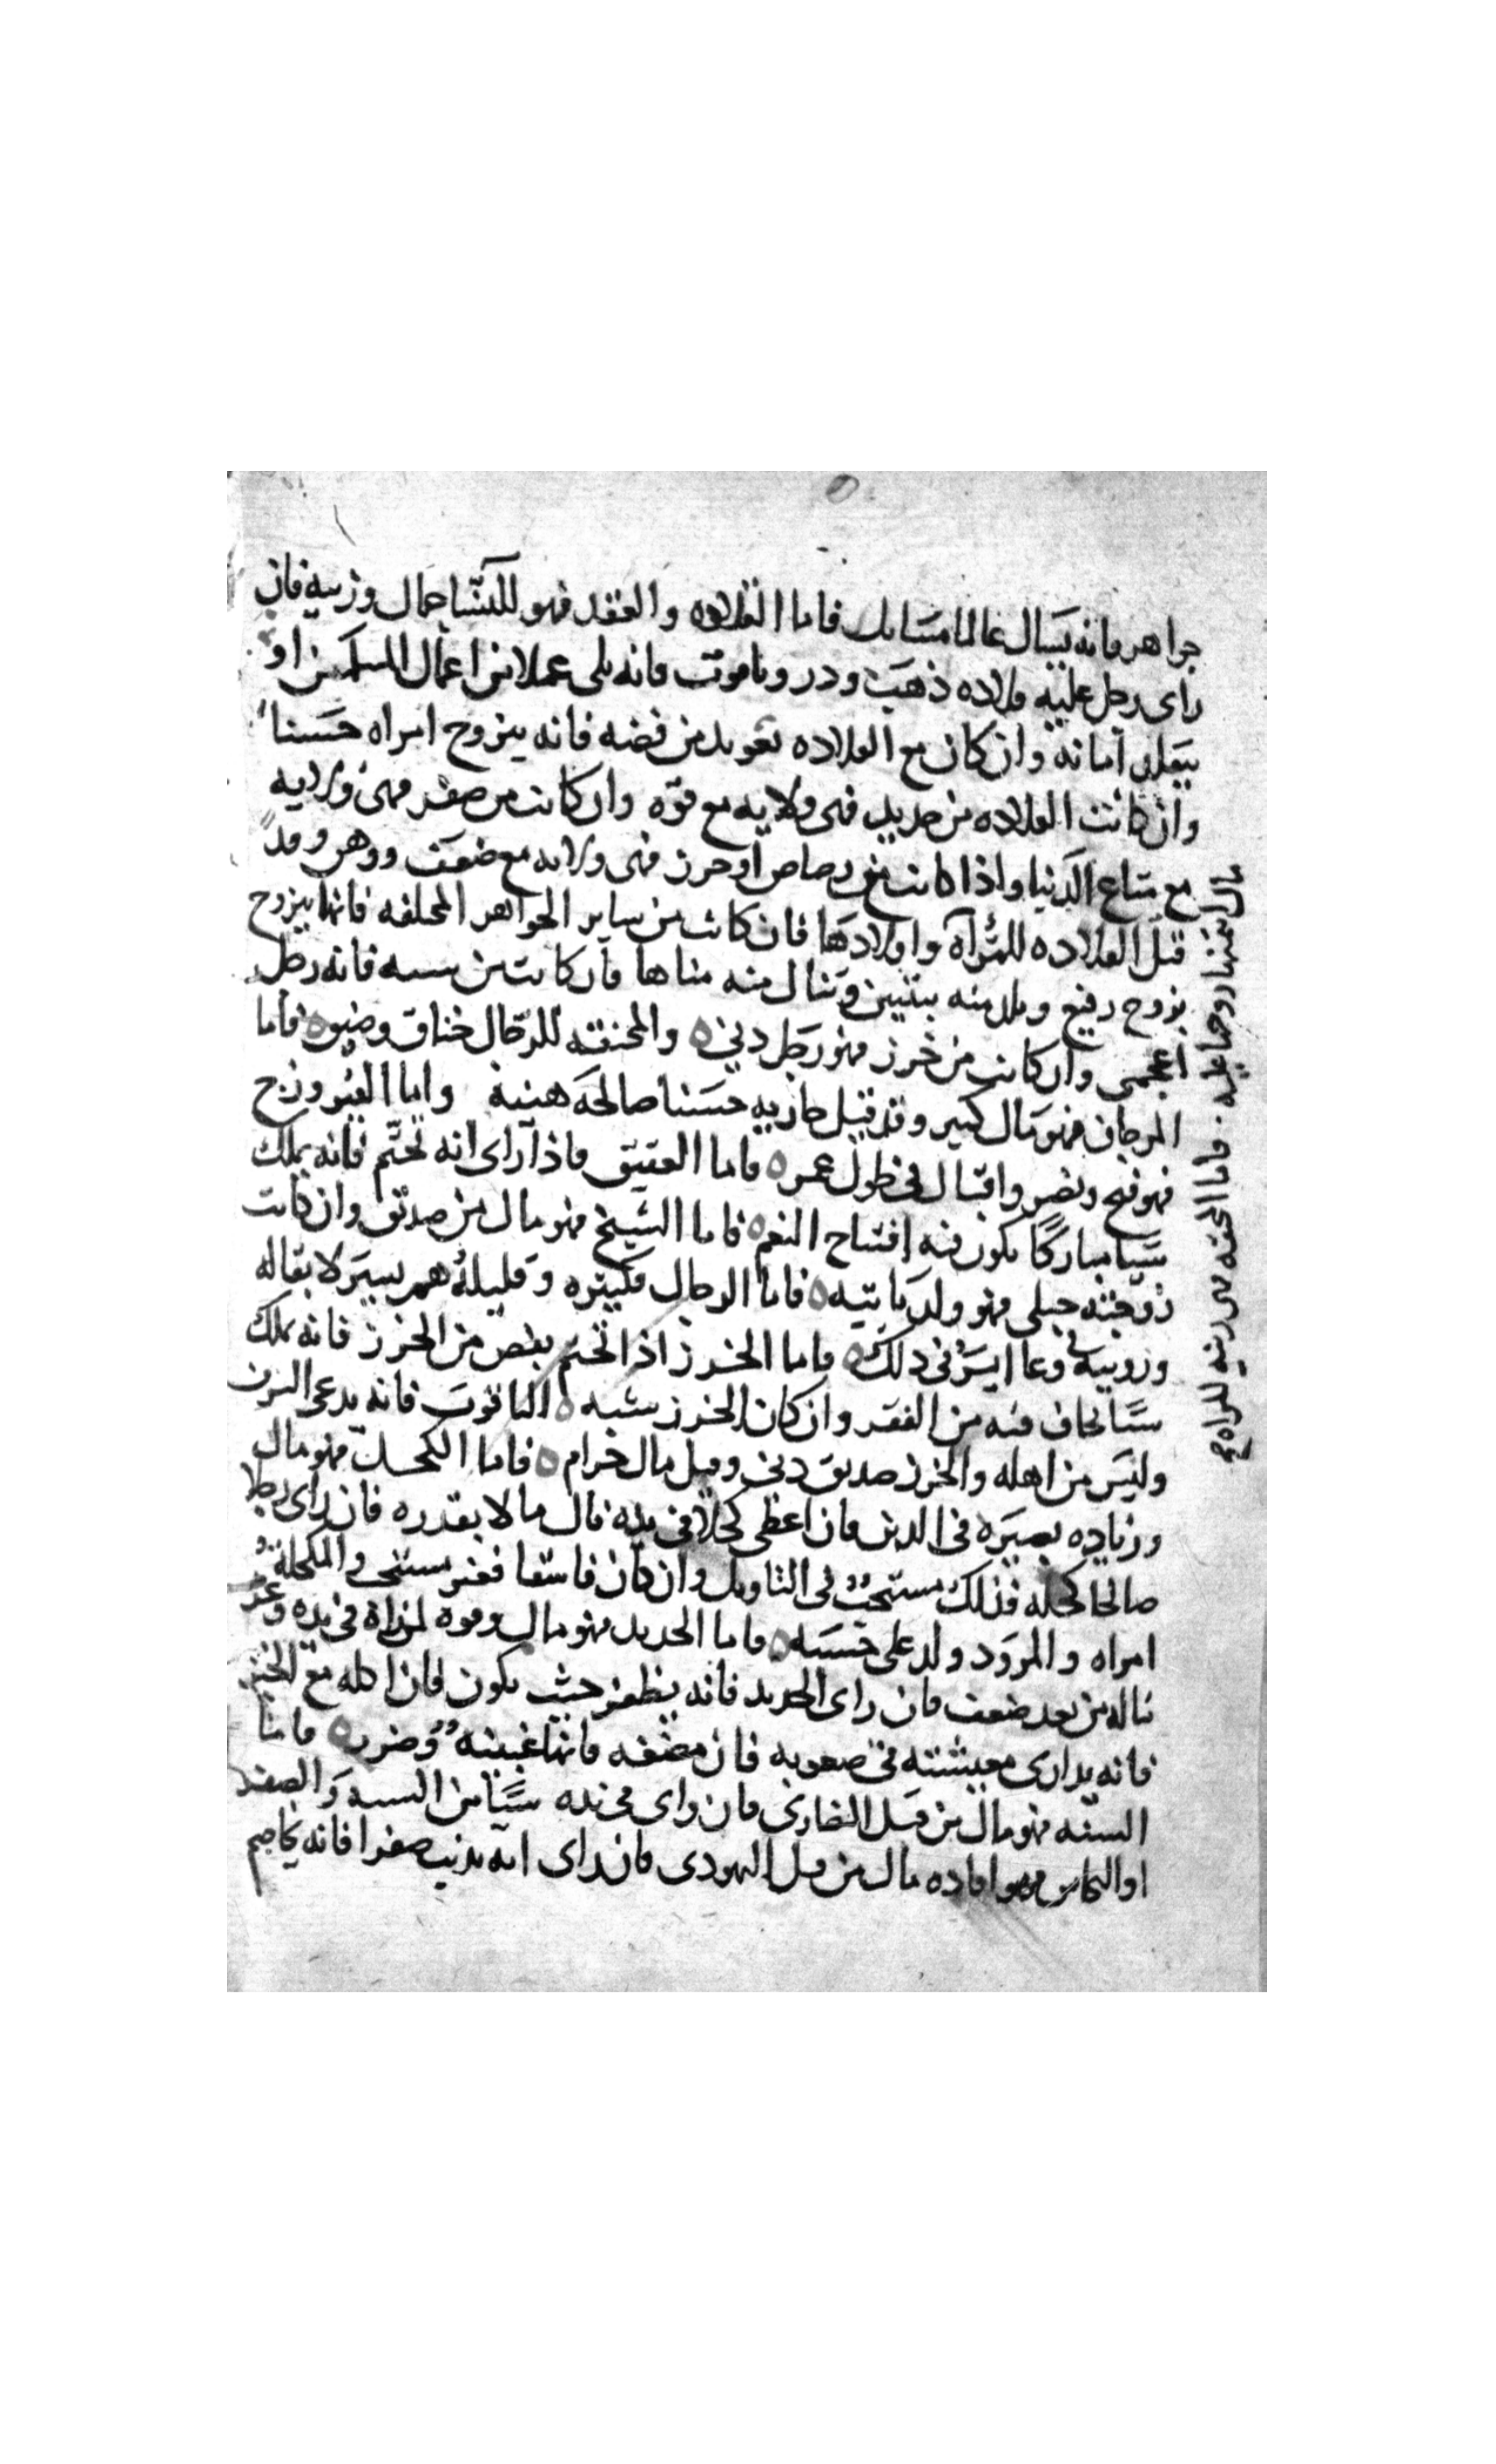 جواهر فانه يسال عالما مسايل فاما القلاده والعقد فهو للنسا جمال وزينه فان
راى رجل عليه قلاده ذهب ودر وياقوت فانه يلى عملا من اعمال المسلمين او
يتقلد امانه وان كان مع القلاده تعويد من فضه فانه يتزوج امراه حسنا
وان كانت القلاده من حديد فهى ولايه مع قوه وان كانت من صفر فهى ولايه
مع متاع الدنيا واذا كانت من رصاص او خرز فهى ولايه مع ضعف ووهن وقد
قيل القلاده للمرآه واولادها فان كانت من ساير الجواهر المختلفه فانها تتزوج
بزوج رفيع وتلد منه بنتين وتنال منه مناها فان كانت من شبه فانه رجل
اعجمى وان كانت من خرز فهو رجل دنى ه والمخنقه للرجال خناق وضيق ه فاما
المرجان فهو مال كبير وقد قيل جاريه حسنا صالحه هنيه واما الفيروزج
فهو فتح ونصر واقبال فى طول عمر ه فاما العقيق فاذا راى انه تختم فانه يملك
شيا مباركا يكون فيه افتتاح النعم ه فاما الشيخ فهو مال من صدق وان كانت
زوجته حبلى فهو ولد ياتيه ه فاما الرجال فكثيره وقليله هم يسير لا بقا له
وزوبيه وعا ايسر فى ذلك ه فاما الخرز اذا تختم بفص من الخرز فانه يملك
شيا يخاف فيه من الفقر وان كان الخرز يشبه ه الياقوت فانه يدعى الشرف
وليس من اهله والخرز صديق دنى وقيل مال حرام ه فاما الكحل فهو مال
وزياده بصيره فى الدين فان اعطى كحلا فى يده نال مالا بقدره فان راى رجلا
صالحا كحله فذلك مستحب فى التاويل وان كان فاسقا فغير مستحب والمكحلة
امراه والمرود ولد على حسبه ه فاما الحديد فهو مال وقوه لمن راه فى يده وعز
ناله من بعد ضعف فان راى الحديد فانه يظفر حيث يكون فان اكله مع الخبز
فانه يدارى معيشته فى صعوبه فان مضغه فانها غيبته وضرر ه فاما
الشبه فهو مال من قبل النصارى فان راى فى يده شيا من الشبه والصفر
او النحاس فهو افاده مال من قبل اليهودى فان راى انه يذيب صفرا فانه يخاصم
فاما المخنقه هى زينه للمراه